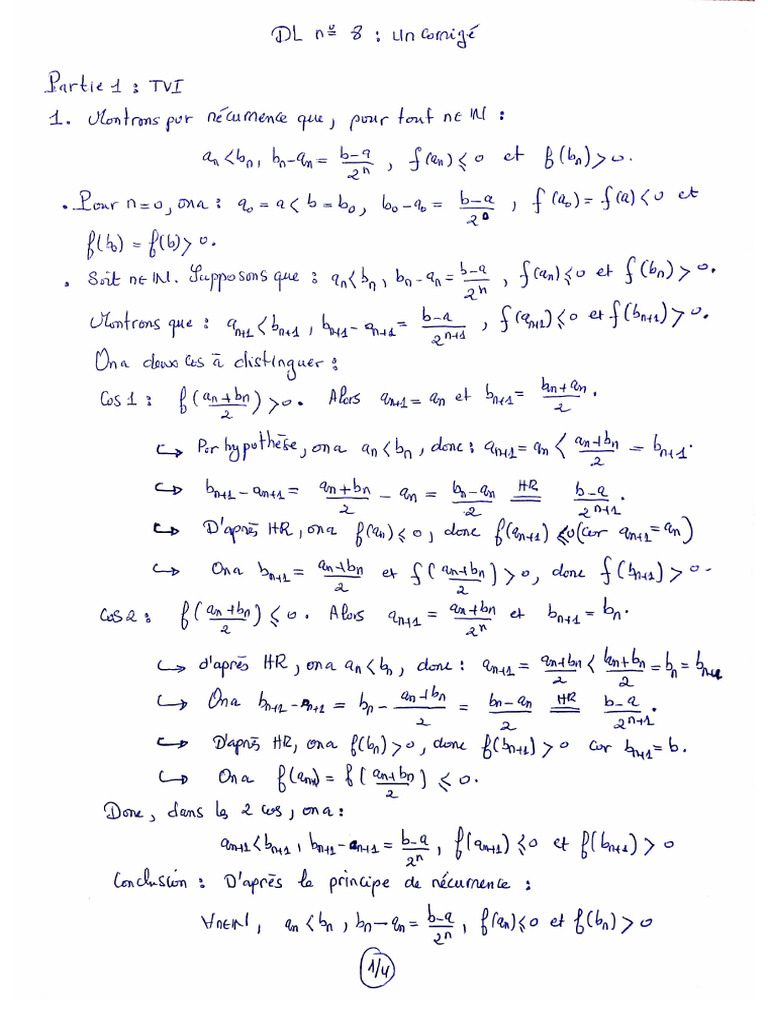 DL n° 8 : un corrigé
Partie 1 : TVI
1. Montrons par récurrence que, pour tout n∈ℕ :
aₙ < bₙ, bₙ - aₙ = (b-a)/2ⁿ, f(aₙ) ≤ 0 et f(bₙ) > 0.
• Pour n=0, on a : a₀ = a < b = b₀, b₀ - a₀ = (b-a)/2⁰, f(a₀) = f(a) < 0 et
f(b₀) = f(b) > 0.
• Soit n∈ℕ. Supposons que : aₙ < bₙ, bₙ - aₙ = (b-a)/2ⁿ, f(aₙ) ≤ 0 et f(bₙ) > 0.
Montrons que : aₙ₊₁ < bₙ₊₁, bₙ₊₁ - aₙ₊₁ = (b-a)/2ⁿ⁺¹, f(aₙ₊₁) ≤ 0 et f(bₙ₊₁) > 0.
On a deux cas à distinguer :
Cas 1 : f((aₙ+bₙ)/2) > 0. Alors aₙ₊₁ = aₙ et bₙ₊₁ = (bₙ+aₙ)/2.
↪ Par hypothèse, on a aₙ < bₙ, donc : aₙ₊₁ = aₙ < (aₙ+bₙ)/2 = bₙ₊₁.
↪ bₙ₊₁ - aₙ₊₁ = (aₙ+bₙ)/2 - aₙ = (bₙ-aₙ)/2 =HR= (b-a)/2ⁿ⁺¹.
↪ D'après HR, on a f(aₙ) ≤ 0, donc f(aₙ₊₁) ≤ 0 (car aₙ₊₁ = aₙ)
↪ On a bₙ₊₁ = (aₙ+bₙ)/2 et f((aₙ+bₙ)/2) > 0, donc f(bₙ₊₁) > 0.
Cas 2 : f((aₙ+bₙ)/2) ≤ 0. Alors aₙ₊₁ = (aₙ+bₙ)/2ⁿ et bₙ₊₁ = bₙ.
↪ d'après HR, on a aₙ < bₙ, donc : aₙ₊₁ = (aₙ+bₙ)/2 < (bₙ+bₙ)/2 = bₙ = bₙ₊₁
↪ On a bₙ₊₁ - aₙ₊₁ = bₙ - (aₙ+bₙ)/2 = (bₙ-aₙ)/2 =HR= (b-a)/2ⁿ⁺¹.
↪ D'après HR, on a f(bₙ) > 0, donc f(bₙ₊₁) > 0 car bₙ₊₁ = b.
↪ On a f(aₙ₊₁) = f((aₙ+bₙ)/2) ≤ 0.
Donc, dans les 2 cas, on a :
aₙ₊₁ < bₙ₊₁, bₙ₊₁ - aₙ₊₁ = (b-a)/2ⁿ, f(aₙ₊₁) ≤ 0 et f(bₙ₊₁) > 0
Conclusion : D'après le principe de récurrence :
∀n∈ℕ, aₙ < bₙ, bₙ - aₙ = (b-a)/2ⁿ, f(aₙ) ≤ 0 et f(bₙ) > 0
1/4